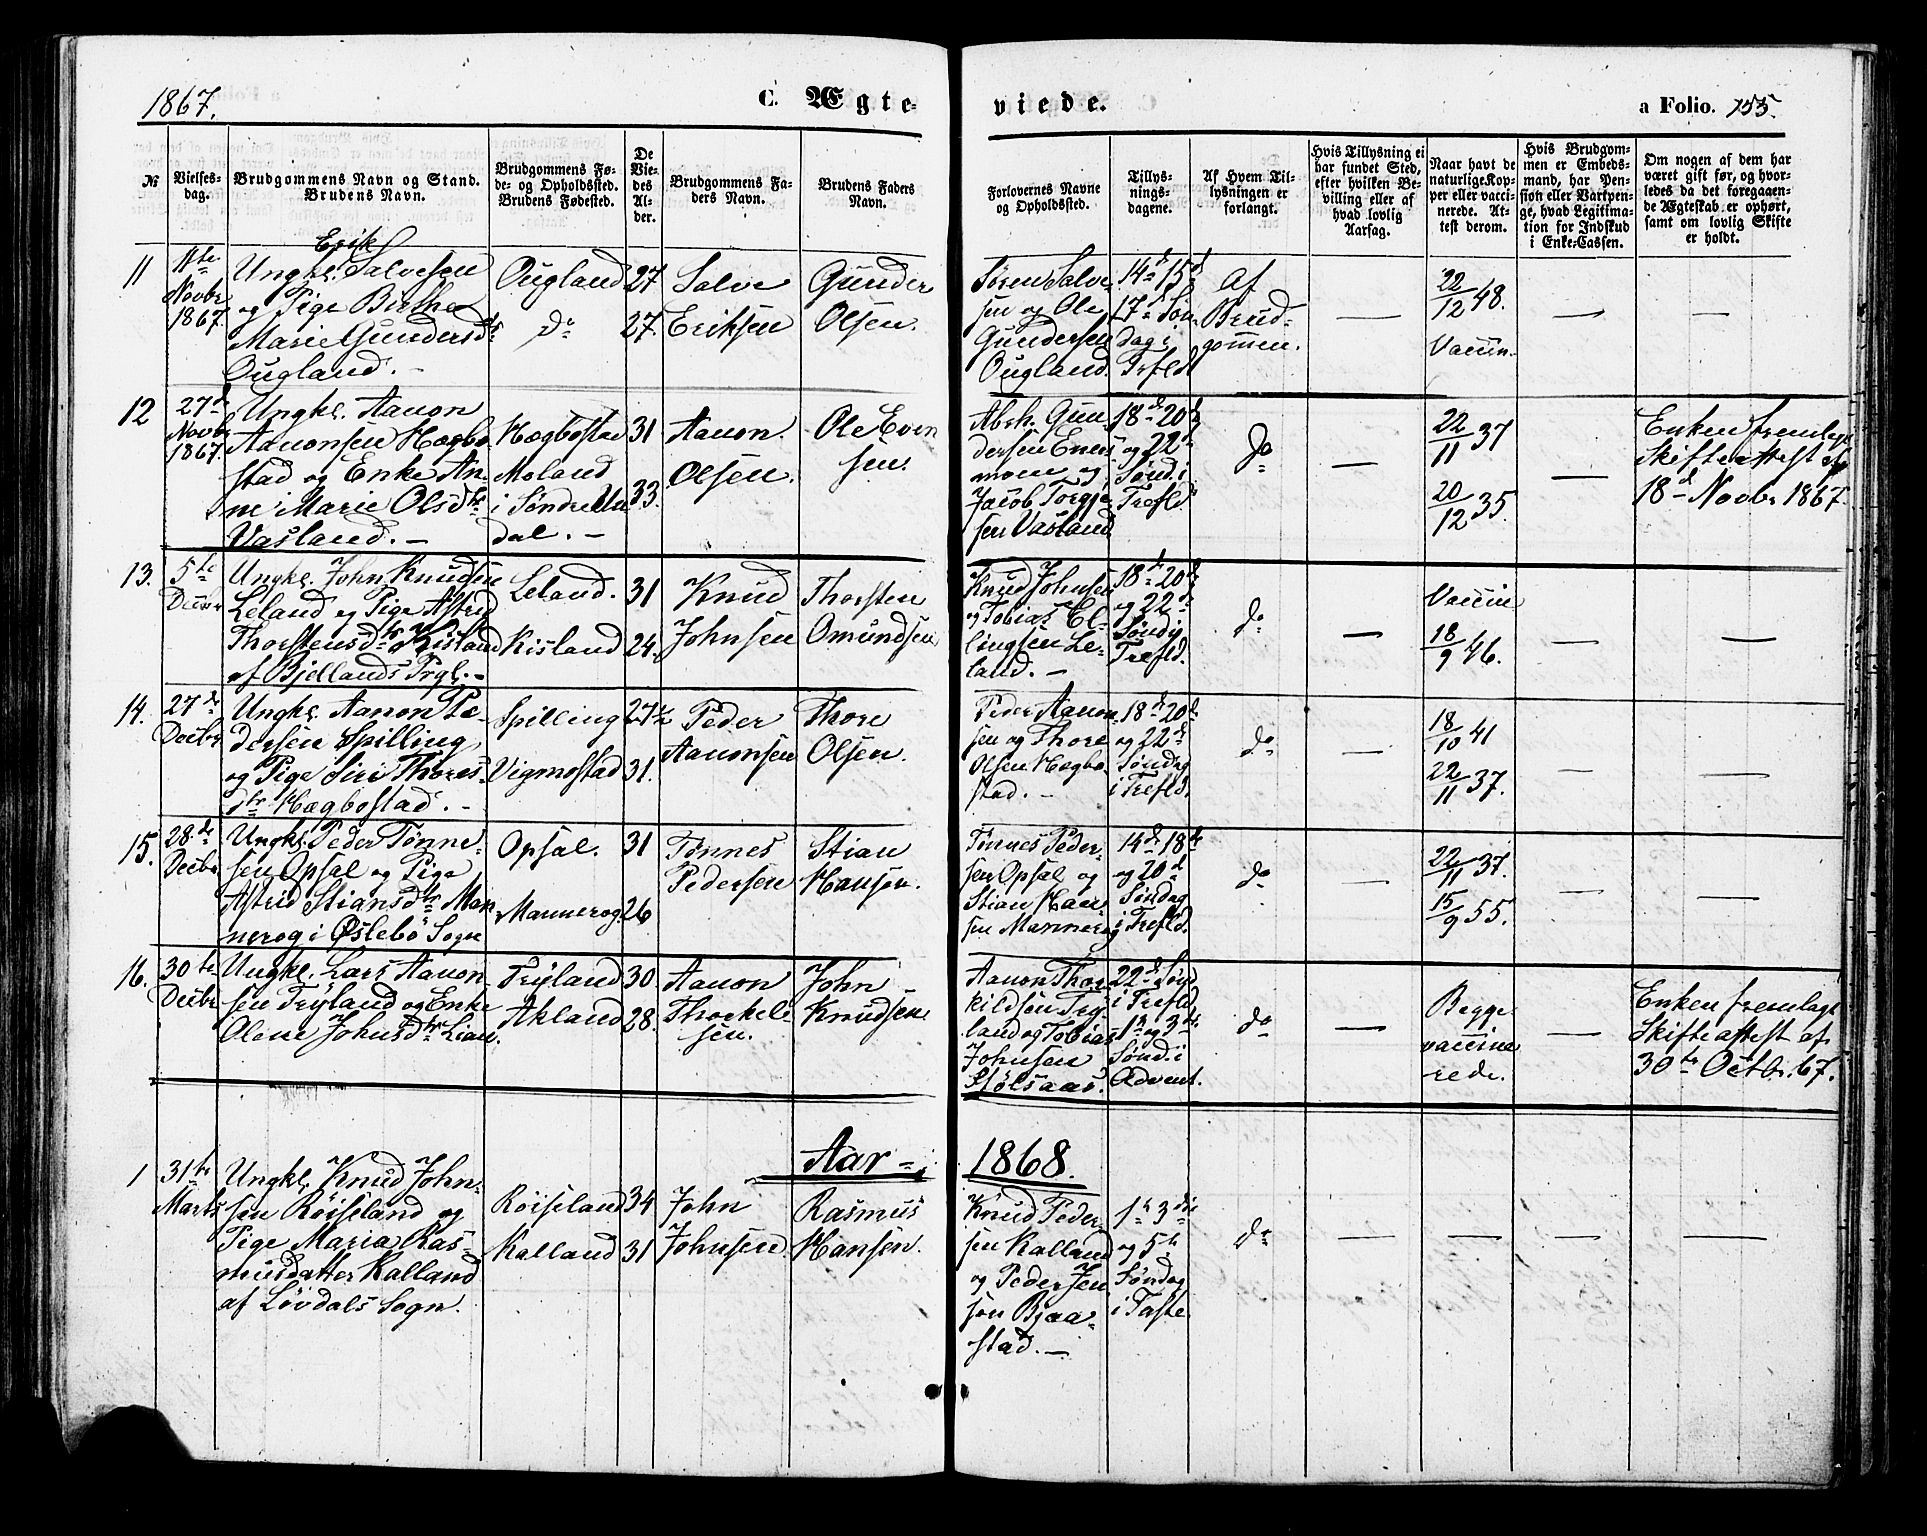 1867.
C. Ægte-
viede.
a Folio. 155.
№
Vielses-
dag.
Brudgommens Navn og Stand.
Brudens Navn.
Brudgommens Fø-
de- og Opholdssted.
Brudens Fødested.
De
Vie-
des
Al-
der.
Brudgommens Fa-
ders Navn.
Brudens Faders
Navn.
Forlovernes Navne
og Opholdssted.
Tillys-
nings-
dagene.
Af Hvem Til-
lysningen er
forlangt.
Hvis Tillysning ei
har fundet Sted,
efter hvilken Be-
villing eller af
hvad lovlig
Aarsag.
Naar havt de
naturlige Kop-
per eller vacci-
nerede. At-
test derom.
Hvis Brudgom-
men er Embeds-
mand, har Pen-
sion eller Vartpen-
ge, hvad Legitima-
tion for Indskud
i Enke-Cassen.
Om nogen af dem har
været gift før, og hvor-
ledes da det foregaaen-
de Ægteskab er ophørt,
samt om lovlig Skifte
er holdt.
11
11te
Novbr
1867.
Erik
Ungkl. Salvesen
og Pige Birthe
Marie Gundersd
Ougland. -
Ougland
do
27
27.
Salve
Eriksen
Gunder
Olsen.
Søren Salve-
sen og Ole
Gundersen
Ougland
14d 15d
17d Søn
dag i
Trefld
af
Brud-
gommen.
22/12 48.
Vaccin.
12
27d
Novb
1867.
Ungkl. Aanon
Aanonsen Hægbo
stad og Enke An-
ne Marie Olsdtr
Vasland. -
Hægbostad
Moland
i Søndre Un
dal. -
31
33.
Aanon
Olsen.
Ole Even
sen.
Absk. Gun
dersen Eners
moen og
Jacob Torgje
sen Vasland
18d 20d
og 22d
Sønd. i
Trefld.
do
22/11 37
20/12 35.
Enken fremlagt
Skifteattest af
18d Novbr 1867.
13.
5te
Decbr
Ungkl. John Knudsen
Leland og Pige Astrid
Thorstensdtr Kisland
af Bjellands Prgl. -
Leland.
Kisland
31
24.
Knud
Johnsen
Thorsten
Omundsen
Knud Johnsen
og Tobias El-
lingsen Le-
land. -
18d 20d
og 22d
Sønd i
Trefld.
do
Vaccin
18/9 46.
14.
27de
Decbr
Ungkl. Aanon Pe-
dersen Spilling
og Pige Siri Thores-
dtr Hægbostad. -
Spilling
Vigmostad
27½
31.
Peder
Aanonsen
Thore
Olsen.
Peder Aanon
sen og Thore
Olsen Hægbo
stad. -
18d 20d
og 22d
Søndag
i Trefld.
do
18/10 41
22/11 37.
15.
28de
Decbr
Ungkl. Peder Tønne-
sen Opsal og Pige
Astrid Stiansdtr Man
nerog i Øslebø Sogn
Opsal.
Mannerog.
31
26
Tønnes
Pedersen
Stian
Hansen.
Tønnes Peder-
sen Opsal og
Stian Han-
sen Mannerog
14d 18d
og 20d
Søndag
i Trefld.
do
22/11 37.
15/9 55.
16.
30te
Decbr
Ungkl. Lars Aanon
sen Tryland og Enke
Olene Johnsdtr Lian.
Tryland
Akland
30
28.
Aanon
Thorkels-
sen.
John
Knudsen
Aanon Thor
kildsen Try
land og Tobias
Johnsen
Stølsaas.
22d Sønd
i Trefld.
1te og 3de
Sønd. i
Advent.
do
Begge
vaccine
rede.
Enken fremlagt
Skifteattest af
30te Octbr. 67.
Aar- 1868.
1
31te
Marts
Ungkl. Knud John-
sen Röiseland og
Pige Maria Ras-
musdatter Kalland
af Løvdals Sogn.
Röiseland
Kalland
34
31
John
Johnsen.
Rasmus
Hansen.
Knud Peder-
sen Kalland
og Peder Jen
sen Bjaa-
stad. -
1te 3die
og 5te
Søndag
i Faste.
do